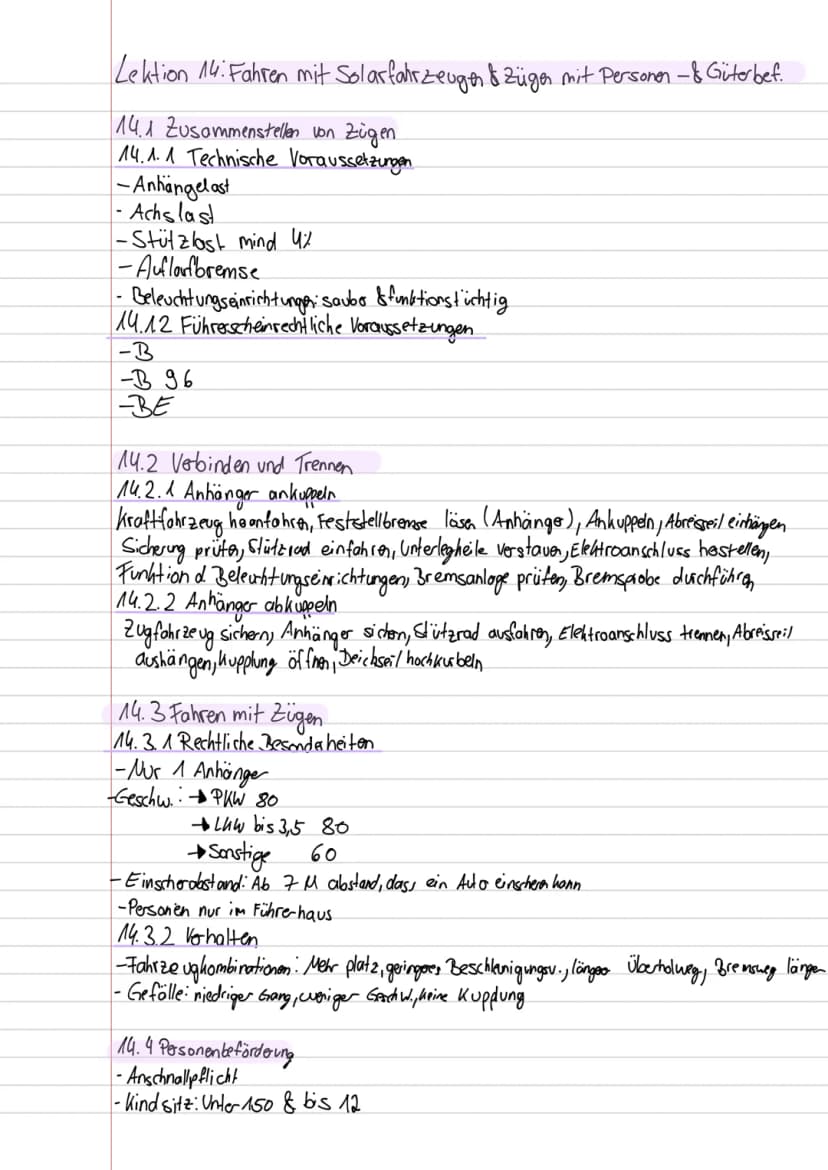 Lektion 14: Fahren mit Solarfahrzeugen & Zügen mit Personen - & Güterbef.
14.1 Zusammenstellen von Zügen
14.1.1 Technische Voraussetzungen
- Anhängelast
- Achslast
- Stützlast mind 4%
- Auflaufbremse
- Beleuchtungseinrichtungen: sauber & funktionstüchtig
14.1.2 Führerscheinrechtliche Voraussetzungen
- B
- B 96
- BE
14.2 Verbinden und Trennen
14.2.1 Anhänger ankuppeln
Kraftfahrzeug heranfahren, Feststellbremse lösen (Anhänger), Ankuppeln, Abreisseil einhängen
Sicherung prüfen, Stützrad einfahren, Unterlegkeile verstauen, Elektroanschluss herstellen,
Funktion d Beleuchtungseinrichtungen, Bremsanlage prüfen, Bremsprobe durchführen
14.2.2 Anhänger abkuppeln
Zugfahrzeug sichern, Anhänger sichern, Stützrad ausfahren, Elektroanschluss trennen, Abreisseil
aushängen, Kupplung öffnen, Deichseil hochkurbeln
14.3 Fahren mit Zügen
14.3.1 Rechtliche Besonderheiten
- Nur 1 Anhänger
- Geschw.: → PKW 80
→ LKW bis 3,5 80
→ Sonstige 60
- Einscherabstand: Ab 7 M abstand, dass ein Auto einscheren kann
- Personen nur im Führerhaus
14.3.2 Verhalten
- Fahrzeugkombinationen: Mehr platz, geringeres Beschleunigungsv., länger Überholweg, Bremsweg länger
- Gefälle: niedriger Gang, weniger Geschw., keine Kupplung
14.4 Personenbeförderung
- Anschnallpflicht
- Kindsitz: Unter 150 & bis 12